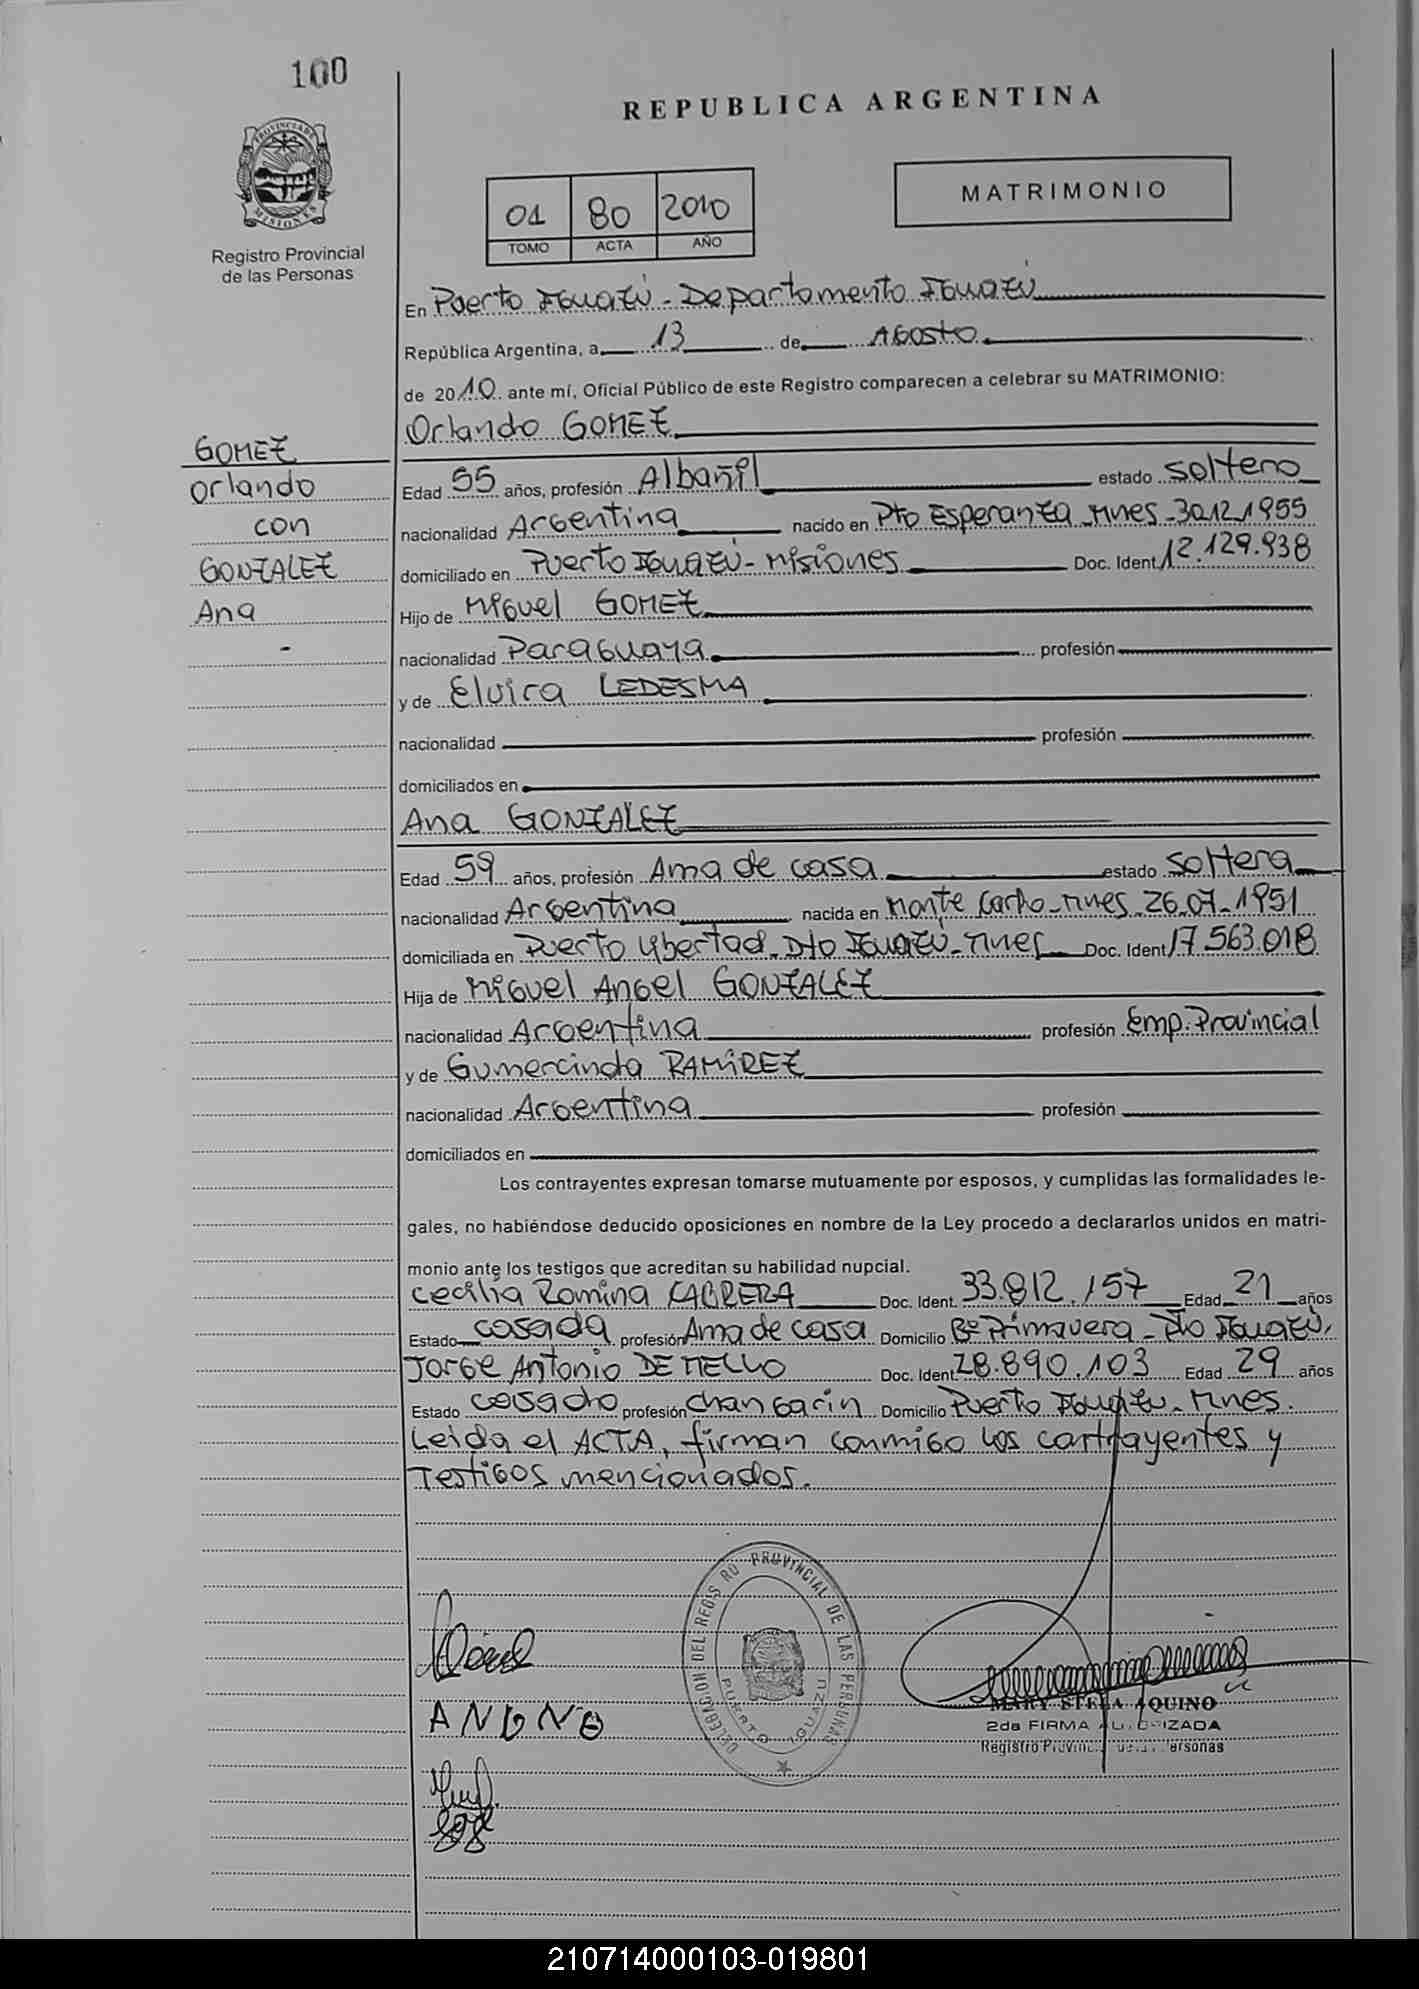 100
REPUBLICA ARGENTINA
PROVINCIA DE
MISIONES
Registro Provincial
de las Personas
01 80 2010
TOMO ACTA AÑO
MATRIMONIO
En Puerto Iguazú - Departamento Iguazú
República Argentina, a 13 de Agosto
de 2010 ante mí, Oficial Público de este Registro comparecen a celebrar su MATRIMONIO:
Orlando GOMEZ
GOMEZ
Orlando
con
GONZALEZ
Ana
-
Edad 55 años, profesión Albañil estado Soltero
nacionalidad Argentina nacido en Pto Esperanza Mnes - 30.12.1955
domiciliado en Puerto Iguazú - Misiones Doc. Ident 12.129.938
Hijo de Miguel GOMEZ
nacionalidad Paraguaya profesión
y de Elvira LEDESMA
nacionalidad profesión
domiciliados en
Ana GONZALEZ
Edad 59 años, profesión Ama de casa estado Soltera
nacionalidad Argentina nacida en Monte Carlo - Mnes - 26-07-1951
domiciliada en Puerto Libertad - Dto Iguazú - Mnes Doc. Ident 17.563.018
Hija de Miguel Angel GONZALEZ
nacionalidad Argentina profesión Emp. Provincial
y de Gumercinda RAMIREZ
nacionalidad Argentina profesión
domiciliados en
Los contrayentes expresan tomarse mutuamente por esposos, y cumplidas las formalidades le-
gales, no habiéndose deducido oposiciones en nombre de la Ley procedo a declararlos unidos en matri-
monio ante los testigos que acreditan su habilidad nupcial.
Cecilia Romina CABRERA Doc. Ident. 33.812.157 Edad 21 años
Estado casada profesión Ama de casa Domicilio Bº Primavera - Pto Iguazú,
Jorge Antonio DE MELLO Doc. Ident 28.890.103 Edad 29 años
Estado casado profesión changarin Domicilio Puerto Iguazú - Mnes.
Leida el ACTA, firman conmigo los contrayentes y
Testigos mencionados.
DELEGACION DEL REGIS RO PROVINCIAL DE LAS PERSONAS
PUERTO IGUAZU
MARY STELA AQUINO
2da FIRMA AUTORIZADA
Registro Provincial de las Personas
210714000103-019801